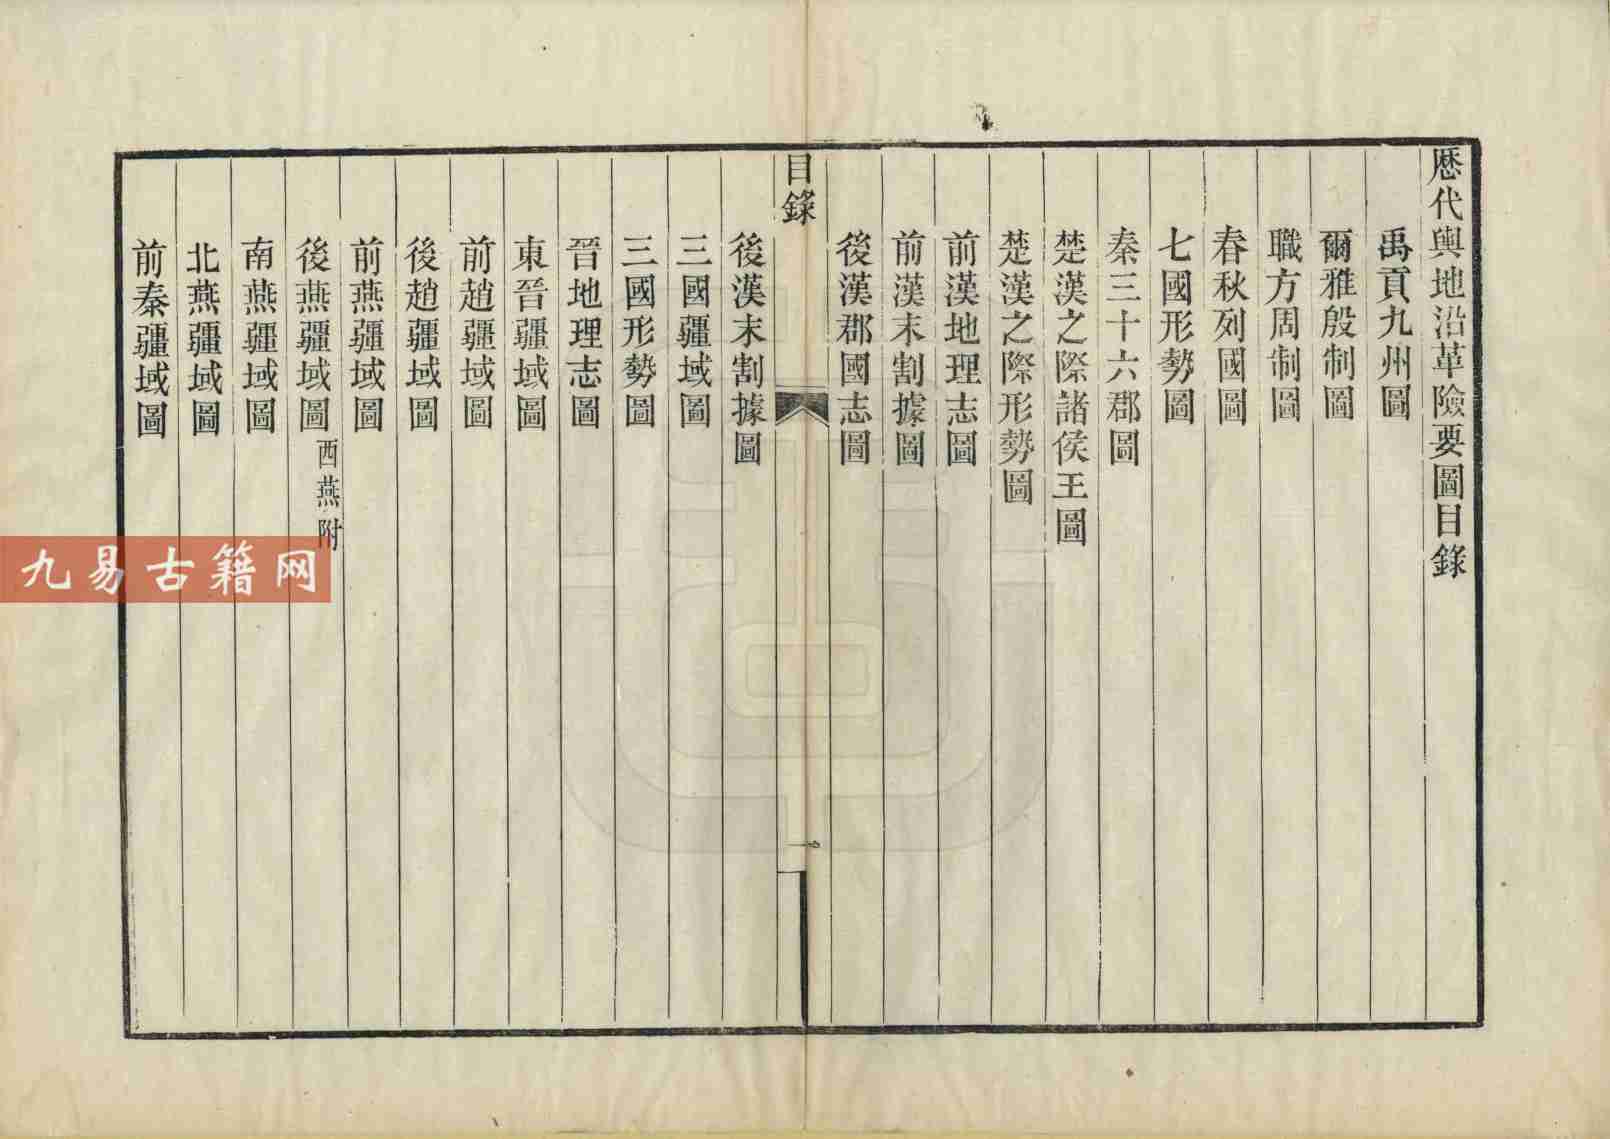 歴代輿地沿革險要圖目錄
禹貢九州圖
爾雅殷制圖
職方周制圖
春秋列國圖
七國形勢圖
秦三十六郡圖
楚漢之際諸侯王圖
楚漢之際形勢圖
前漢地理志圖
前漢末割據圖
後漢郡國志圖
目錄
一
後漢末割據圖
三國疆域圖
三國形勢圖
晉地理志圖
東晉疆域圖
前趙疆域圖
後趙疆域圖
前燕疆域圖
後燕疆域圖西燕附
南燕疆域圖
北燕疆域圖
前秦疆域圖
九易古籍网